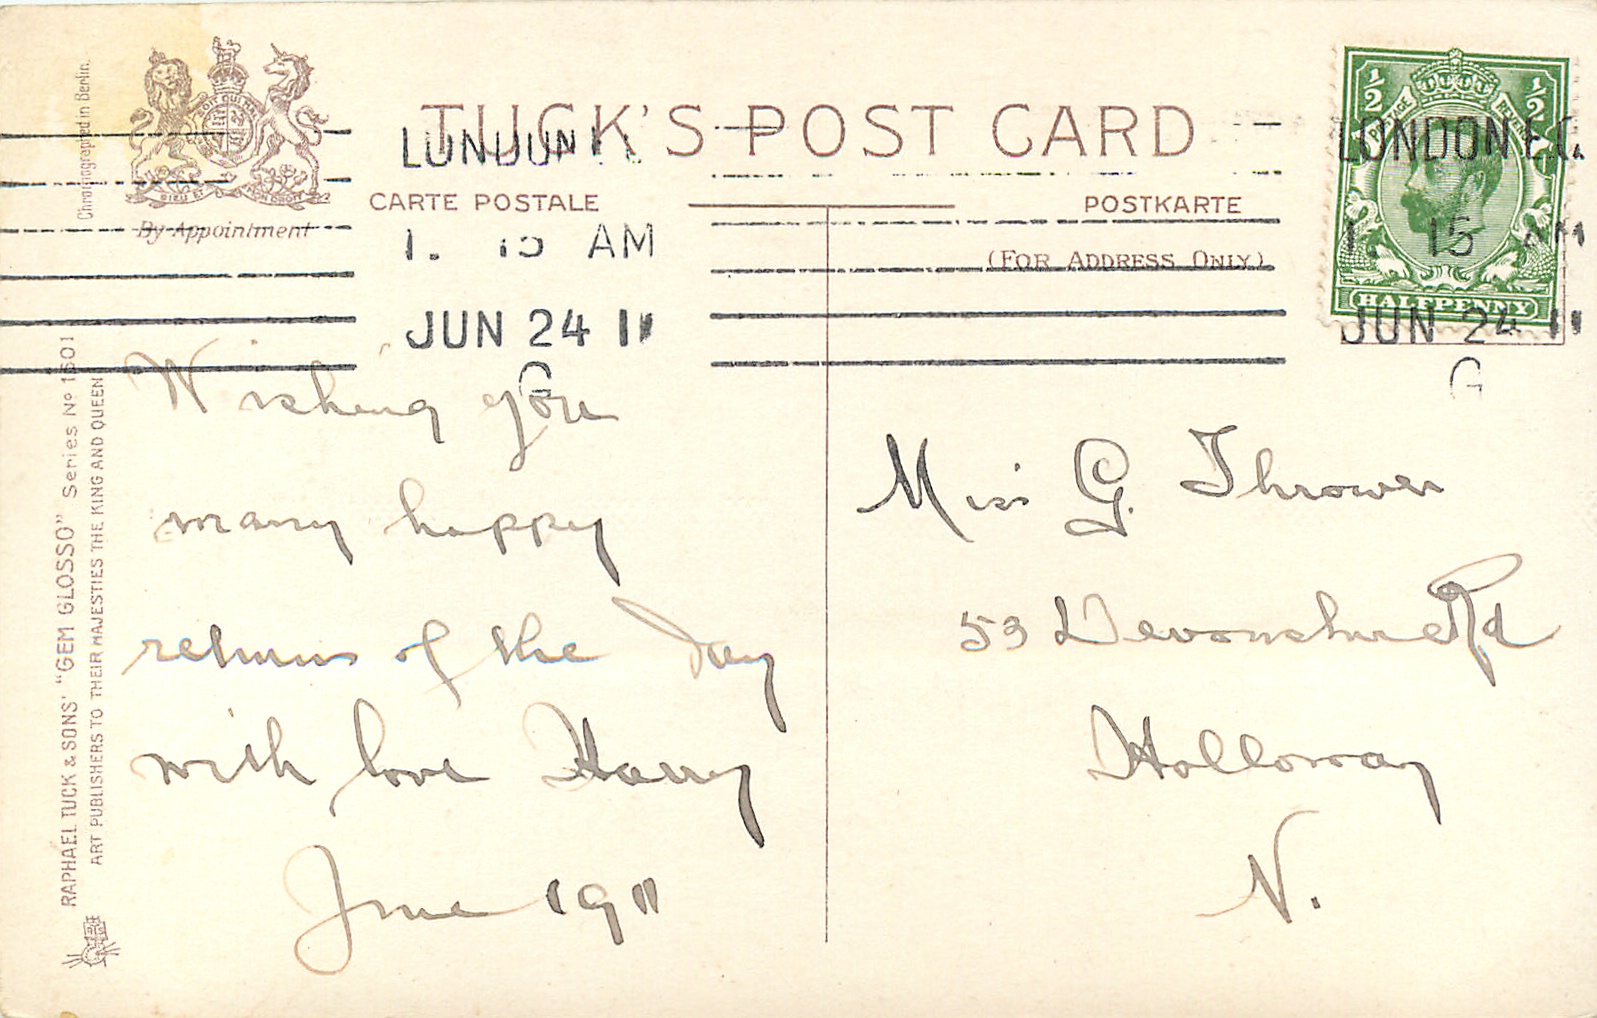 Chromographed in Berlin.
DIEU ET MON DROIT
By Appointment
TUCK'S POST CARD
CARTE POSTALE
POSTKARTE
(FOR ADDRESS ONLY)
LONDON E.C.
1. 15 AM
JUN 24 11
G
½ ½
POSTAGE REVENUE
HALFPENNY
LONDON E.C.
1. 15 AM
JUN 24 11
G
Wishing you
many happy
returns of the day
with love Harry
June 1911
Miss G. Thrower
53 Devonshire Rd
Holloway
N.
RAPHAEL TUCK & SONS' "GEM GLOSSO" Series No 1601
ART PUBLISHERS TO THEIR MAJESTIES THE KING AND QUEEN